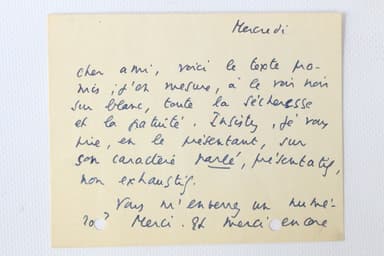 Mercredi
Cher ami, voici le texte pro-
mis ; j'en mesure, à le voir noir
sur blanc, toute la sécheresse
et la gratuité. Insistez, je vous
prie, en le présentant, sur
son caractère parlé, présentatif,
non exhaustif.
Vous m'enverrez un numé-
ro? Merci. Et merci encore